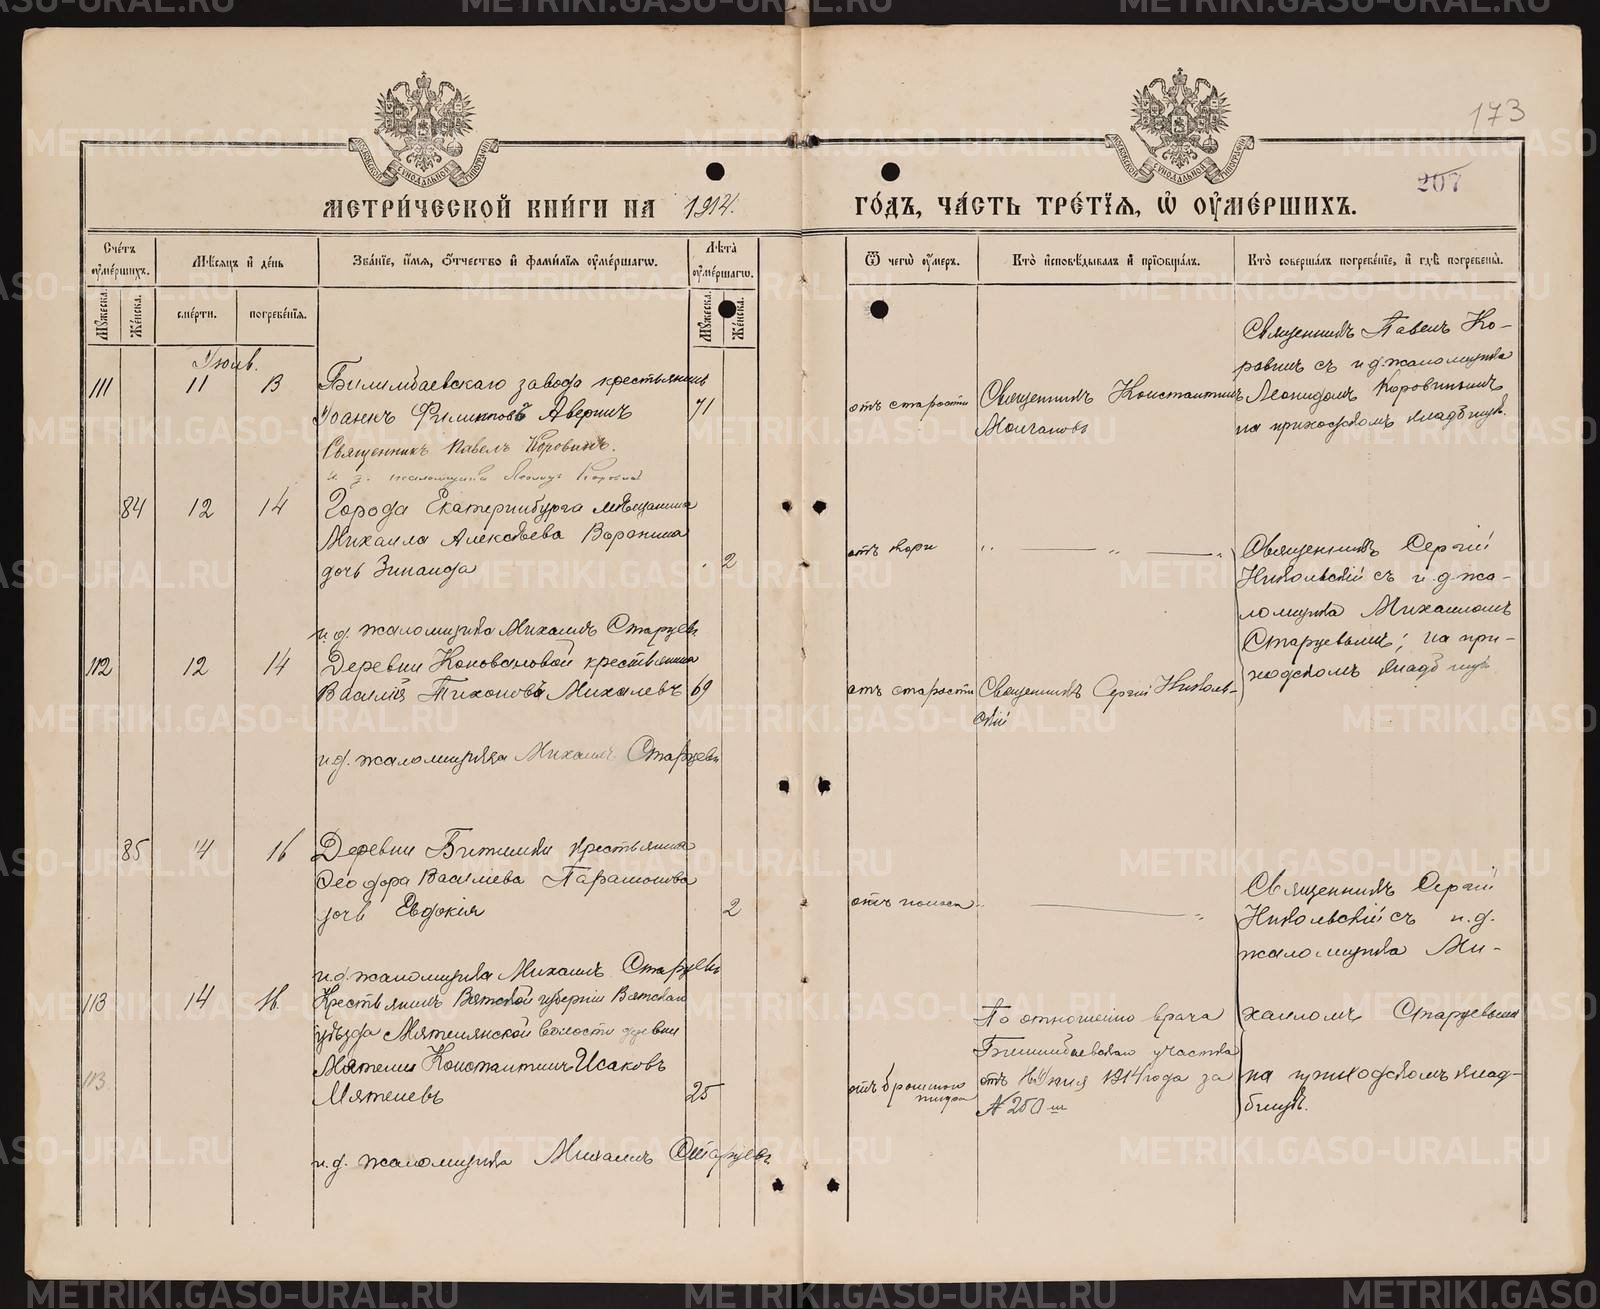 173
207
МЕТРИЧЕСКОЙ КНИГИ НА 1914. ГОДЪ, ЧАСТЬ ТРЕТІЯ, Ѡ ОУМЕРШИХЪ.
Счетъ оумершихъ.
Мѣсяцъ и день
Званіе, имя, отчество и фамилія оумершагѡ.
Лѣта оумершагѡ.
Ѿ чегѡ оумеръ.
Кто исповѣдывалъ и пріобщалъ.
Кто совершалъ погребеніе, и гдѣ погребены.
Мужеска.
Женска.
смерти.
погребенія.
Мужеска.
Женска.
Іюль.
111 11 13
Билимбаевскаго завода крестьянинъ
Іоаннъ Филипповъ Аверинъ 71
Священникъ Павелъ Коровинъ.
и. д. псаломщика Леонидъ Коровин
отъ старости
Священникъ Константинъ
Молчановъ
Священникъ Павелъ Ко-
ровинъ съ и.д. псаломщика
Леонидомъ Коровинымъ
на приходскомъ кладбищѣ.
84 12 14
Города Екатеринбурга мѣщанина
Михаила Алексѣева Воронина
дочь Зинаида 2
и.д. псаломщика Михаилъ Старцевъ
отъ кори
Священникъ Сергій
Никольскій съ и.д. пса-
ломщика Михаиломъ
Старцевымъ; на при-
ходскомъ кладбищѣ
112 12 14
Деревни Коноваловой крестьянина
Василій Тихоновъ Михалевъ 69
и.д. псаломщика Михаилъ Старцевъ
отъ старости
Священникъ Сергій Николь-
скій
85 14 16
Деревни Битимки крестьянина
Ѳеодора Василіева Парамонова
дочь Евдокія 2
и.д. псаломщика Михаилъ Старцевъ
отъ поноса
Священникъ Сергій
Никольскій съ и.д.
псаломщика Ми-
хаиломъ Старцевымъ
на приходскомъ клад-
бищѣ.
113 14 16
Крестьянинъ Вятской губерніи Вятскаго
уѣзда Мятелянской волости деревни
Мятели Константинъ Исаковъ
113.
Мятелевъ 25
и.д. псаломщика Михаилъ Старцевъ
отъ брюшного
тифа
По отношенію врача
Билимбаевскаго участка
1914 года за
№ 250
METRIKI.GASO-URAL.RU